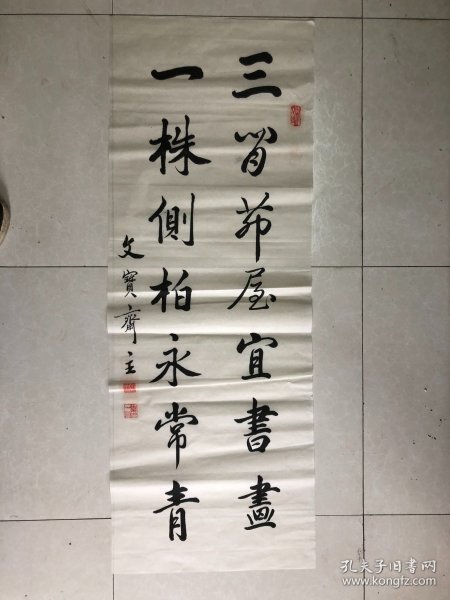 三間茆屋宜書畫
一株側柏永常青
文寶齋主
孔夫子旧书网
www.kongfz.com